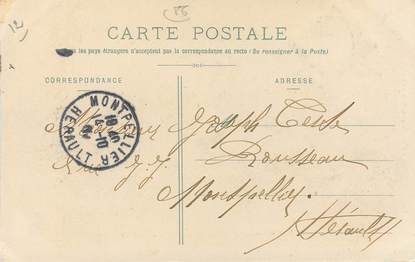 55
12
CARTE POSTALE
les pays étrangers n'acceptent pas la correspondance au recto (Se renseigner à la Poste)
CORRESPONDANCE
ADRESSE
MONTPELLIER
HERAULT
4-10
Monsieur Joseph
Rue J.J. Rousseau
Montpellier
Hérault